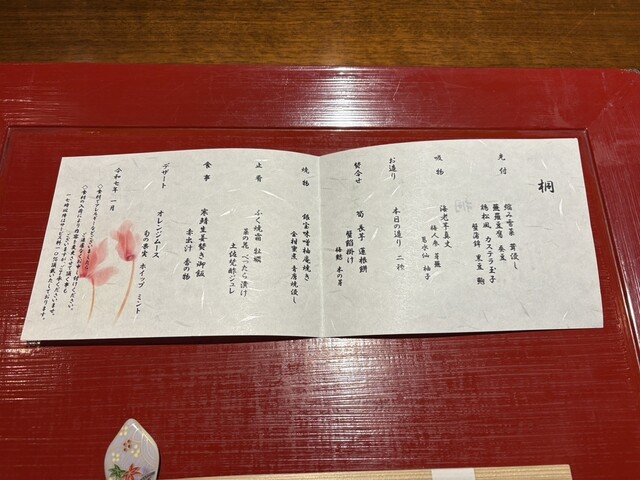 桐
先付
縮み雪菜 茸浸し
蕪豆腐 蚕豆
鶏松風 カステラ玉子
黒豆
吸物
海老芋真丈
梅人参 芽蕪
水仙 柚子
お造り
本日の造り 二種
焚合せ
筍 長芋 蓮根餅
蟹餡掛け
木の芽
焼物
銀宝味噌柚庵焼き
金柑蜜煮
止肴
ふく焼霜 牡蠣
菜の花 べったら漬け
土佐酢ジュレ
食事
寒鯖生姜焚き御飯
赤出汁 香の物
デザート
オレンジムース
旬の果実 ホイップ ミント
令和七年 一月